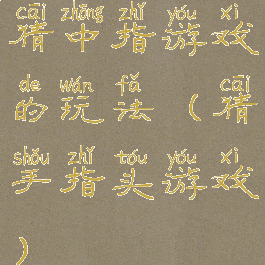 cāi zhōng zhǐ yóu xì
猜中指游戏
de wán fǎ cāi
的玩法（猜
shǒu zhǐ tóu yóu xì
手指头游戏
）